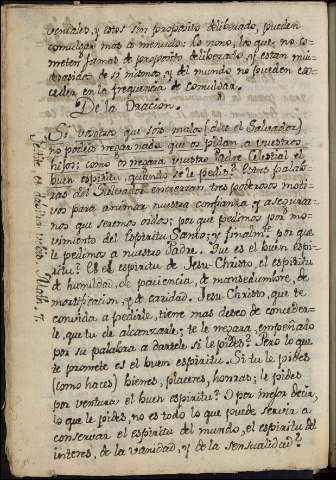 veniales, y estos sin proposito deliberado, pueden
comulgar mas a menudo: lo nono, los que no co-
meten jamas de proposito deliberado, y estan mui
de si mismos, y del mundo no pueden ex-
ceder en la frequencia de comulgar.
De la Oracion.
Si vosotros que sois malos (dice el Salvador)
no podeis negar nada que os pidan a vuestros
hijos; como os negara vuestro Padre Celestial el
buen espiritu, quando se le pedis? Estas palab-
ras del Salvador encierran tres poderosos moti-
vos para animar nuestra confianza, y asegurar-
nos que seremos oidos; por que pedimos por mo-
vimiento del Espiritu Santo; y finalm.te por que
le pedimos a nuestro Padre. Que es el buen espi-
ritu? Es el espiritu de Jesu-Christo, el espiritu
de humildad, de paciencia, de mansedumbre, de
mortificacion, y de caridad. Jesu-Christo, que te
convida a pedirle, tiene mas deseo de conceder-
le, que tu de alcanzarle; te le negara, empeñado
por su palabra a dartele si le pides? Pero lo que
te promete es el buen espiritu. Si tu le pides
(como haces) bienes, placeres, honras; le pides
por ventura el buen espiritu? O por mejor decir,
lo que le pides, no es todo lo que puede servir a
conservar el espiritu del mundo, el espiritu del
interes, de la vanidad, y de la sensualidad?
Petite et dabitur vobis. Math. 7.